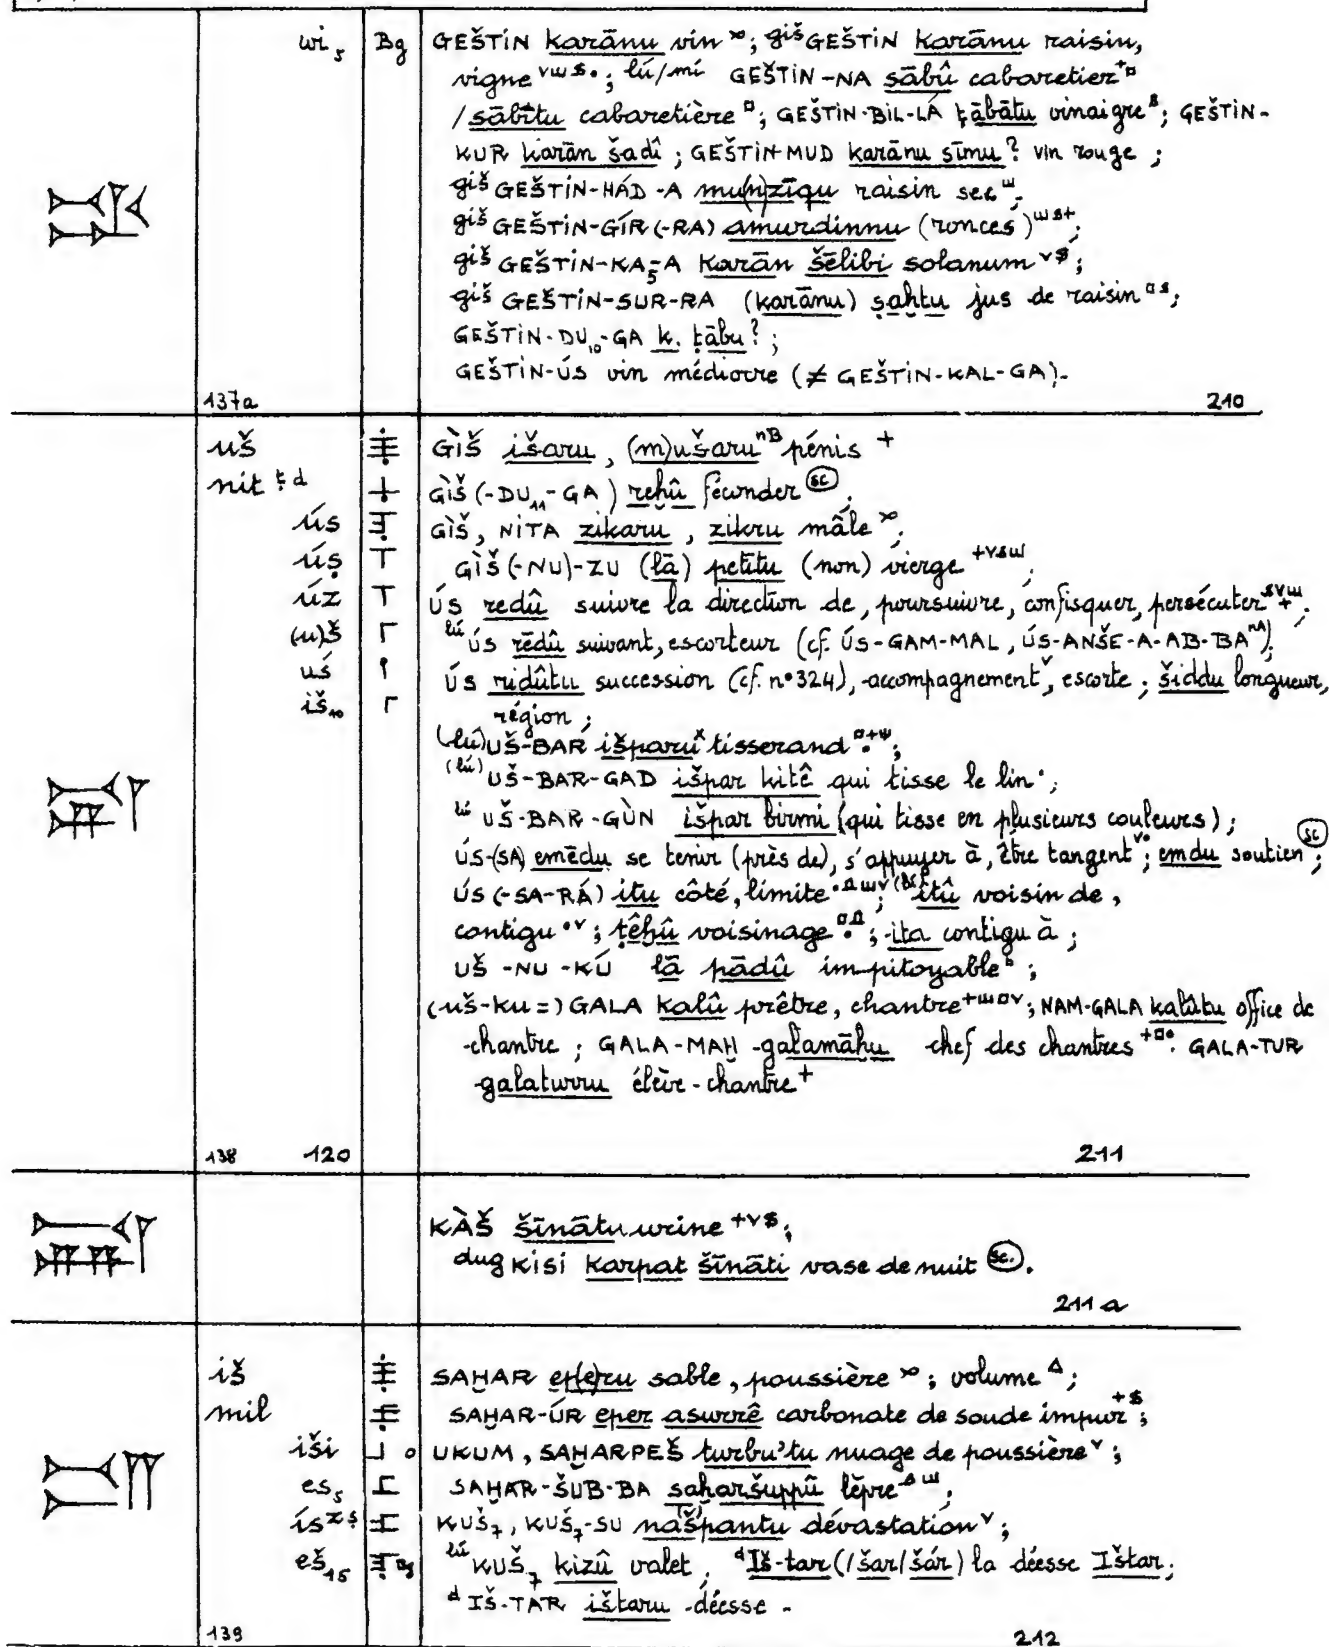 wi₅ Bg GEŠTIN karānu vin ; ᵍⁱˢ̌GEŠTIN karānu raisin,
vigne ; lú/mí GEŠTIN-NA sābû cabaretier
/sābītu cabaretière ; GEŠTIN-BIL-LÁ ṭābātu vinaigre ; GEŠTIN-
KUR karān šadî ; GEŠTIN-MUD karānu sīmu? vin rouge ;
giš GEŠTIN-HÁD-A mu(n)zīqu raisin sec ;
giš GEŠTIN-GÍR(-RA) amurdinnu (ronces) ;
giš GEŠTIN-KA₅-A karān šēlibi solanum ;
giš GEŠTIN-SUR-RA (karānu) ṣaḫtu jus de raisin ;
GEŠTIN-DU₁₀-GA k. ṭābu? ;
GEŠTIN-ÚS vin médiocre (≠ GEŠTIN-KAL-GA).
137a 210
uš GÌŠ išaru, (m)ušaru nB pénis +
nit ṭ d GÌŠ(-DU₁₁-GA) reḫû féconder sc.
ús GÌŠ, NITA zikaru, zikru mâle ;
úṣ GÌŠ(-NU)-ZU (lā) petītu (non) vierge ;
úz ÚS redû suivre la direction de, poursuivre, confisquer, persécuter ;
(u)š lú ÚS rēdû suivant, escorteur (cf. ÚS-GAM-MAL, ÚS-ANŠE-A-AB-BA nA) ;
uš ÚS ridûtu succession (cf. n° 324), accompagnement, escorte ; šiddu longueur,
iš₁₀ région ;
(lú) UŠ-BAR išparu tisserand ;
(lú) UŠ-BAR-GAD išpar kitê qui tisse le lin ;
lú UŠ-BAR-GÙN išpar birmi (qui tisse en plusieurs couleurs) ;
ÚS-(SA) emēdu se tenir (près de), s'appuyer à, être tangent ; emdu soutien sc ;
ÚS(-SA-RÁ) itu côté, limite ; (lú) itû voisin de,
contigu ; ṭêḫû voisinage ; ita contigu à ;
UŠ-NU-KÚ lā pādû impitoyable ;
(uš-ku =) GALA kalû prêtre, chantre ; NAM-GALA kalûtu office de
chantre ; GALA-MAḪ galamāḫu chef des chantres . GALA-TUR
galaturru élève-chantre +
138 120 211
KÀŠ šīnātu urine ;
dug KISI karpat šīnāti vase de nuit sc.
211a
iš SAḪAR ep(e)ru sable, poussière ; volume ;
mil SAḪAR-ÚR eper asurrê carbonate de soude impur ;
iši UKUM, SAḪARPEŠ turbu'tu nuage de poussière ;
es₅ SAḪAR-ŠUB-BA saḫaršuppû lèpre ;
ís z ṣ KUŠ₇, KUŠ₇-SU našpantu dévastation ;
eš₁₅ lú KUŠ₇ kizû valet, d Iš-tar (/šar/šár) la déesse Ištar ;
d IŠ-TAR ištaru déesse.
139 212